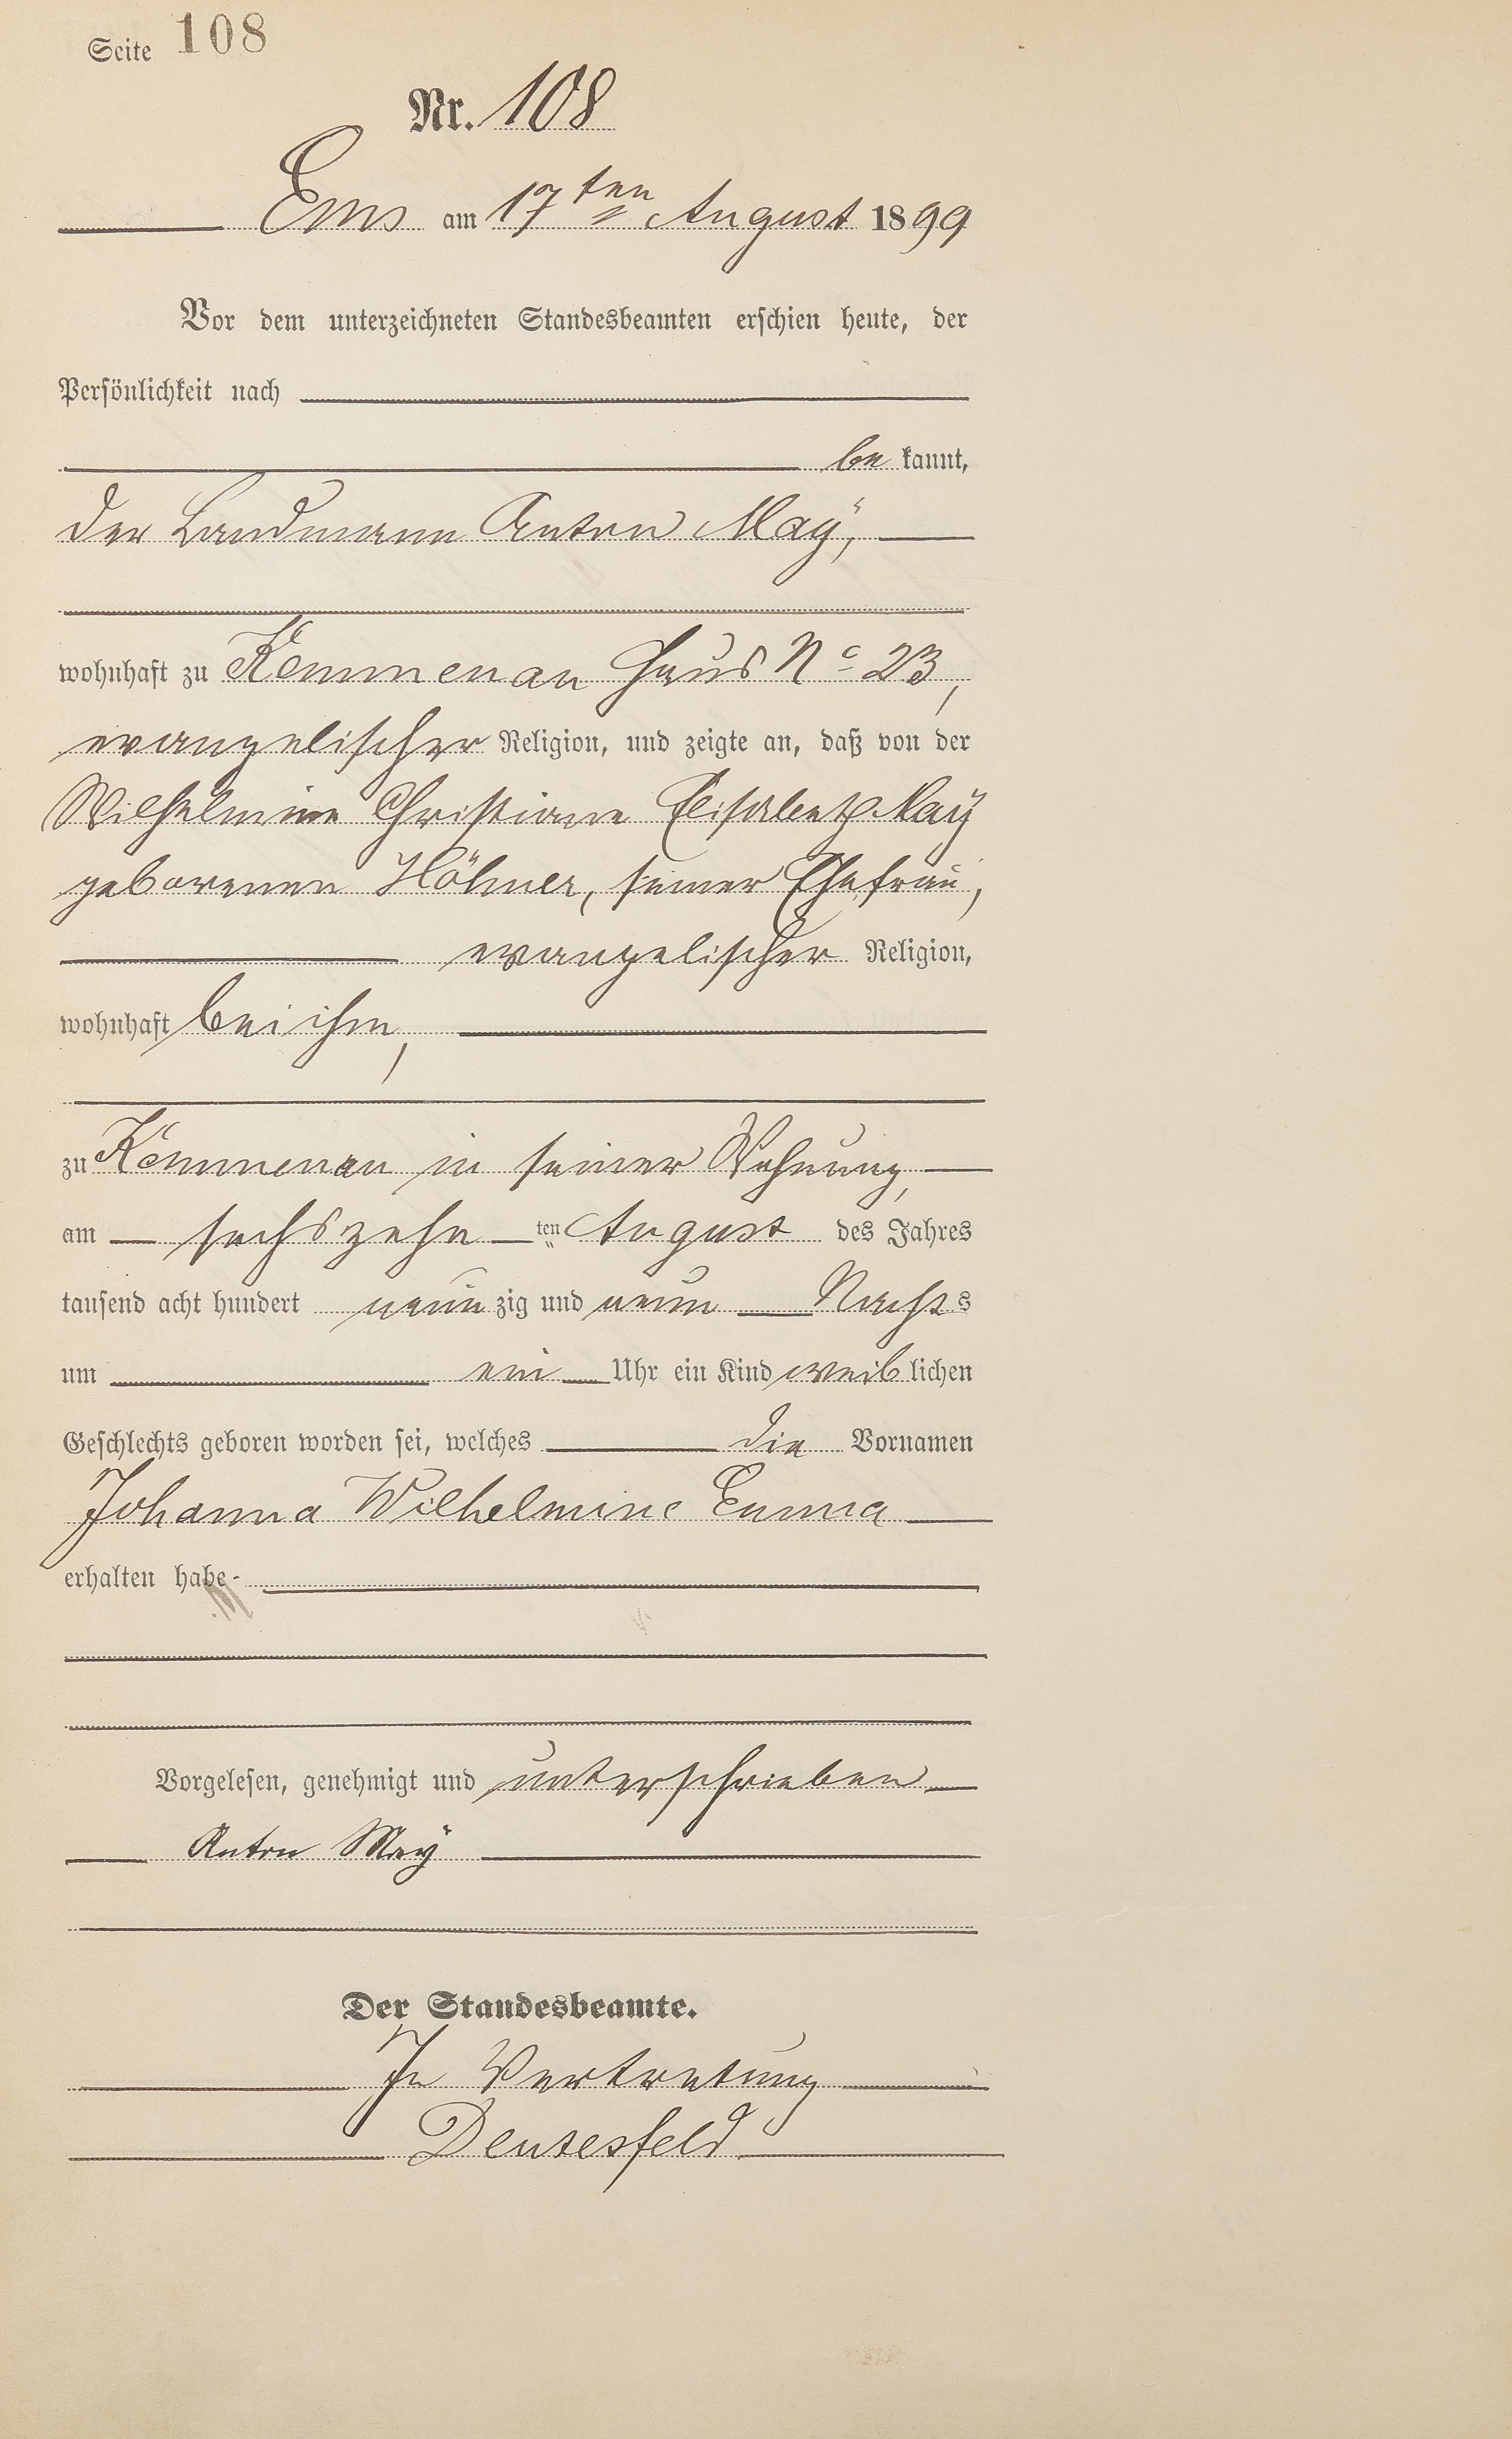 Seite 108
Nr. 108
Ems am 17ten August 1899
Vor dem unterzeichneten Standesbeamten erschien heute, der
Persönlichkeit nach
be kannt,
der Landmann Anton Maÿ,
wohnhaft zu Kemmenau Haus No 23,
evangelischer Religion, und zeigte an, daß von der
Wilhelmine Christiane Elisabeth Maÿ
geborenen Höhner, seiner Ehefrau,
evangelischer Religion,
wohnhaft bei ihm,
zu Kemmenau in seiner Wohnung,
am sechszehn ten August des Jahres
tausend acht hundert neun zig und neun Nachts
um ein Uhr ein Kind weib lichen
Geschlechts geboren worden sei, welches die Vornamen
Johanna Wilhelmine Emma
erhalten habe.
Vorgelesen, genehmigt und unterschrieben
Anton Maÿ
Der Standesbeamte.
In Vertretung
Deusesfeld